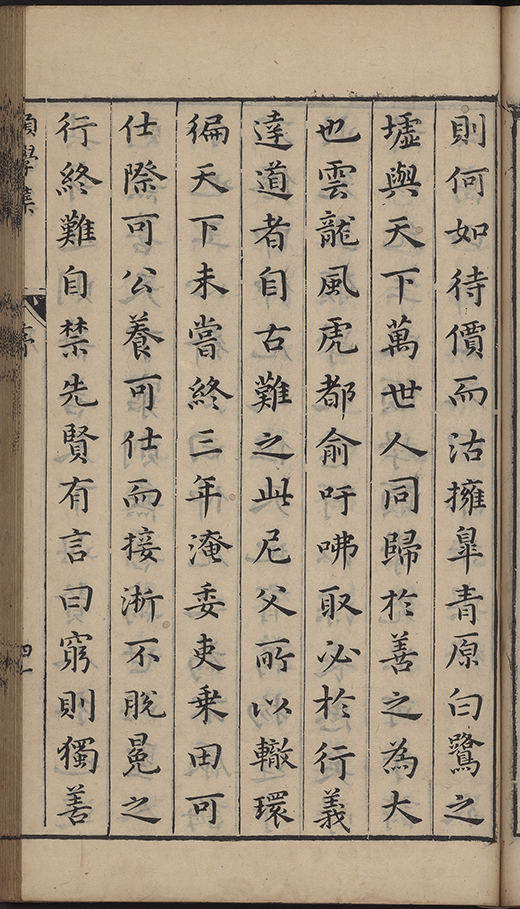 則何如待價而沽擁臯青原白鷺之
墟與天下萬世人同歸於善之為大
也雲龍風虎都俞吁咈取必於行義
達道者自古難之此尼父所以轍環
徧天下未嘗終三年淹委吏乗田可
仕際可公養可仕而接淅不脫冕之
行終難自禁先賢有言曰窮則獨善
學集
序
四